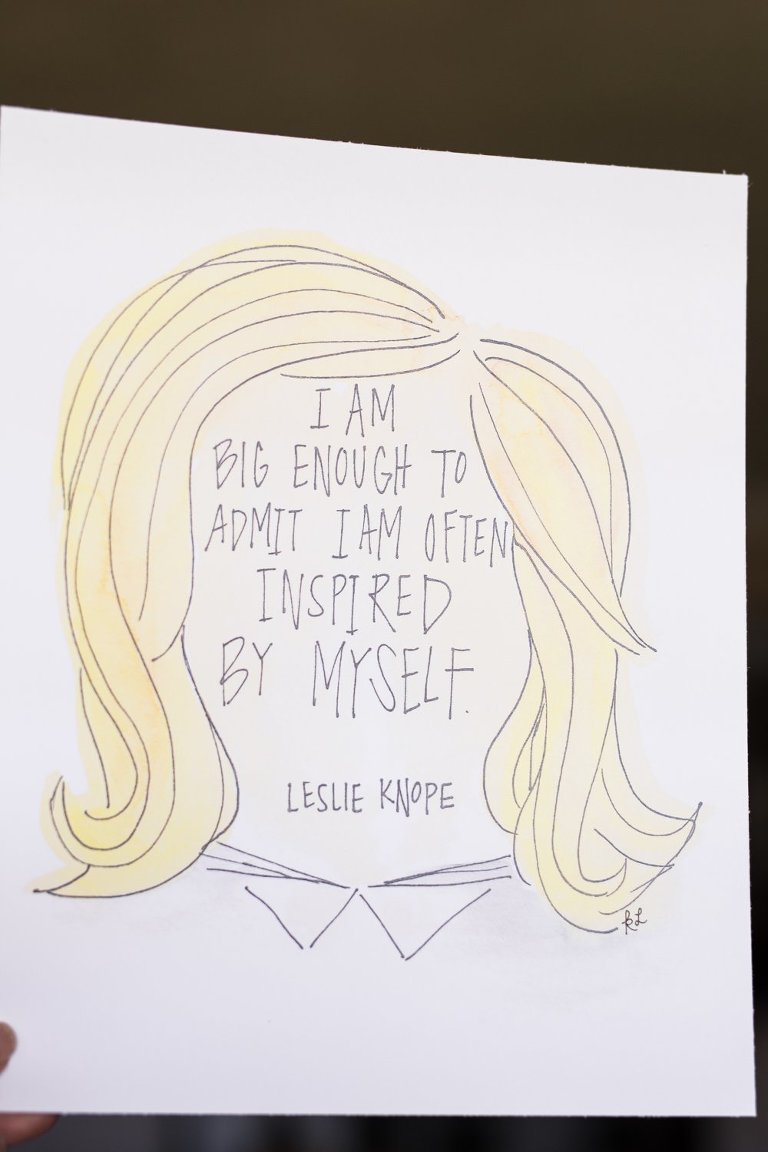 I AM
BIG ENOUGH TO
ADMIT I AM OFTEN
INSPIRED
BY MYSELF.
LESLIE KNOPE
RL